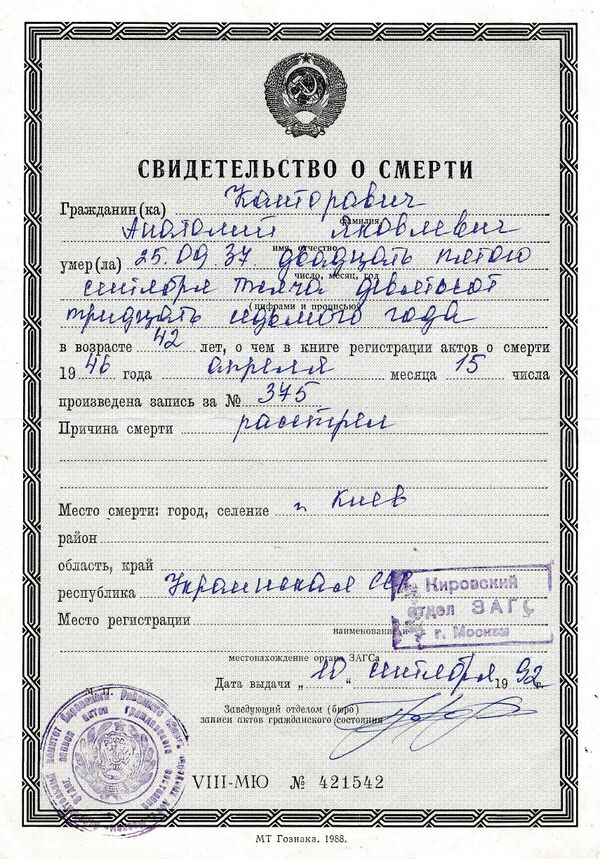 СВИДЕТЕЛЬСТВО О СМЕРТИ
Гражданин(ка) Канторович
фамилия
Анатолий Яковлевич
имя, отчество
умер(ла) 25.09.37. двадцать пятого
число, месяц, год
сентября тысяча девятьсот
(цифрами и прописью)
тридцать седьмого года
в возрасте 42 лет, о чем в книге регистрации актов о смерти
1946 года апреля месяца 15 числа
произведена запись за № 375
Причина смерти расстрел
Место смерти: город, селение г. Киев
район
область, край
республика Украинская ССР
Кировский
отдел ЗАГС
г. Москвы
Место регистрации
наименование и
местонахождение органа ЗАГСа
Дата выдачи „10“ сентября 1992 г.
М. П.
Заведующий отделом (бюро)
записи актов гражданского состояния
VIII-МЮ № 421542
МТ Гознака. 1988.